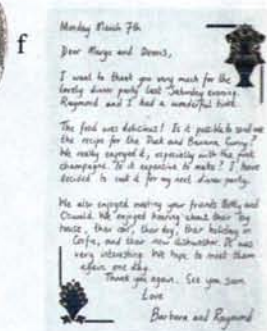 f
Monday March 7th
Dear Margo and Dennis,
I want to thank you very much for the
lovely dinner party last Saturday evening.
Raymond and I had a wonderful time.
The food was delicious! Is it possible to send me
the recipe for the Duck and Banana Curry?
We really enjoyed it, especially with the pink
champagne. Is it expensive to make? I have
decided to cook it for my next dinner party.
We also enjoyed meeting your friends Betty and
Oswald. We enjoyed hearing about their big
house, their car, their dog, their holiday in
Corfu, and their new dishwasher. It was
very interesting. We hope to meet them
again one day.
Thank you again. See you soon.
Love
Barbara and Raymond